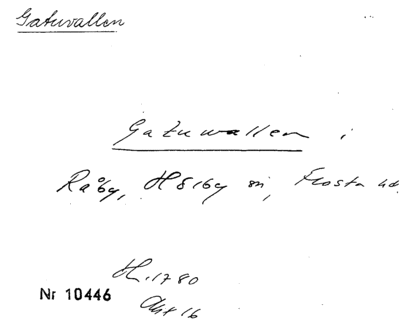 Gatuvallen
Gatuwallen i
Råby, Hörby sn, Frosta hd.
H. 1780
Akt 16
Nr 10446